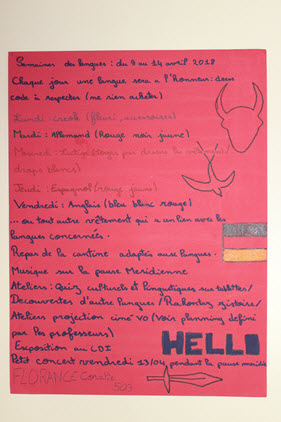 Semaines des langues : du 9 au 14 avril 2018
Chaque jour une langue sera a l'Honneur : dress
code à respecter (ne rien acheter)
Lundi : creole (fleuri, accessoires)
Mardi : Allemand (Rouge noir jaune)
Mercredi : par dessus
draps blancs)
Jeudi : Espagnol (rouge jaune)
Vendredi : Anglais (bleu blanc rouge)
... ou tout autre vêtement qui a un lien avec les
langues concernés.
Repas de la cantine adaptés aux langues.
Musique sur la pause Meridienne
Ateliers : Quizz culturels et linguistiques sur tablettes/
Decouvertes d'autre langues / Rakontaz zistoire/
Ateliers projection ciné VO (Voir planning defini
par les professeurs)
Exposition au CDI
HELLO
Petit concert vendredi 13/04 pendant la pause
FLORANCE Coralie
503